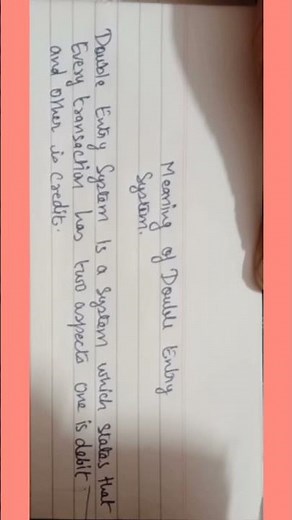 Meaning of Double Entry
System.
Double Entry System Is a System which States that
Every transaction has two aspects One is debit
and other is Credit.